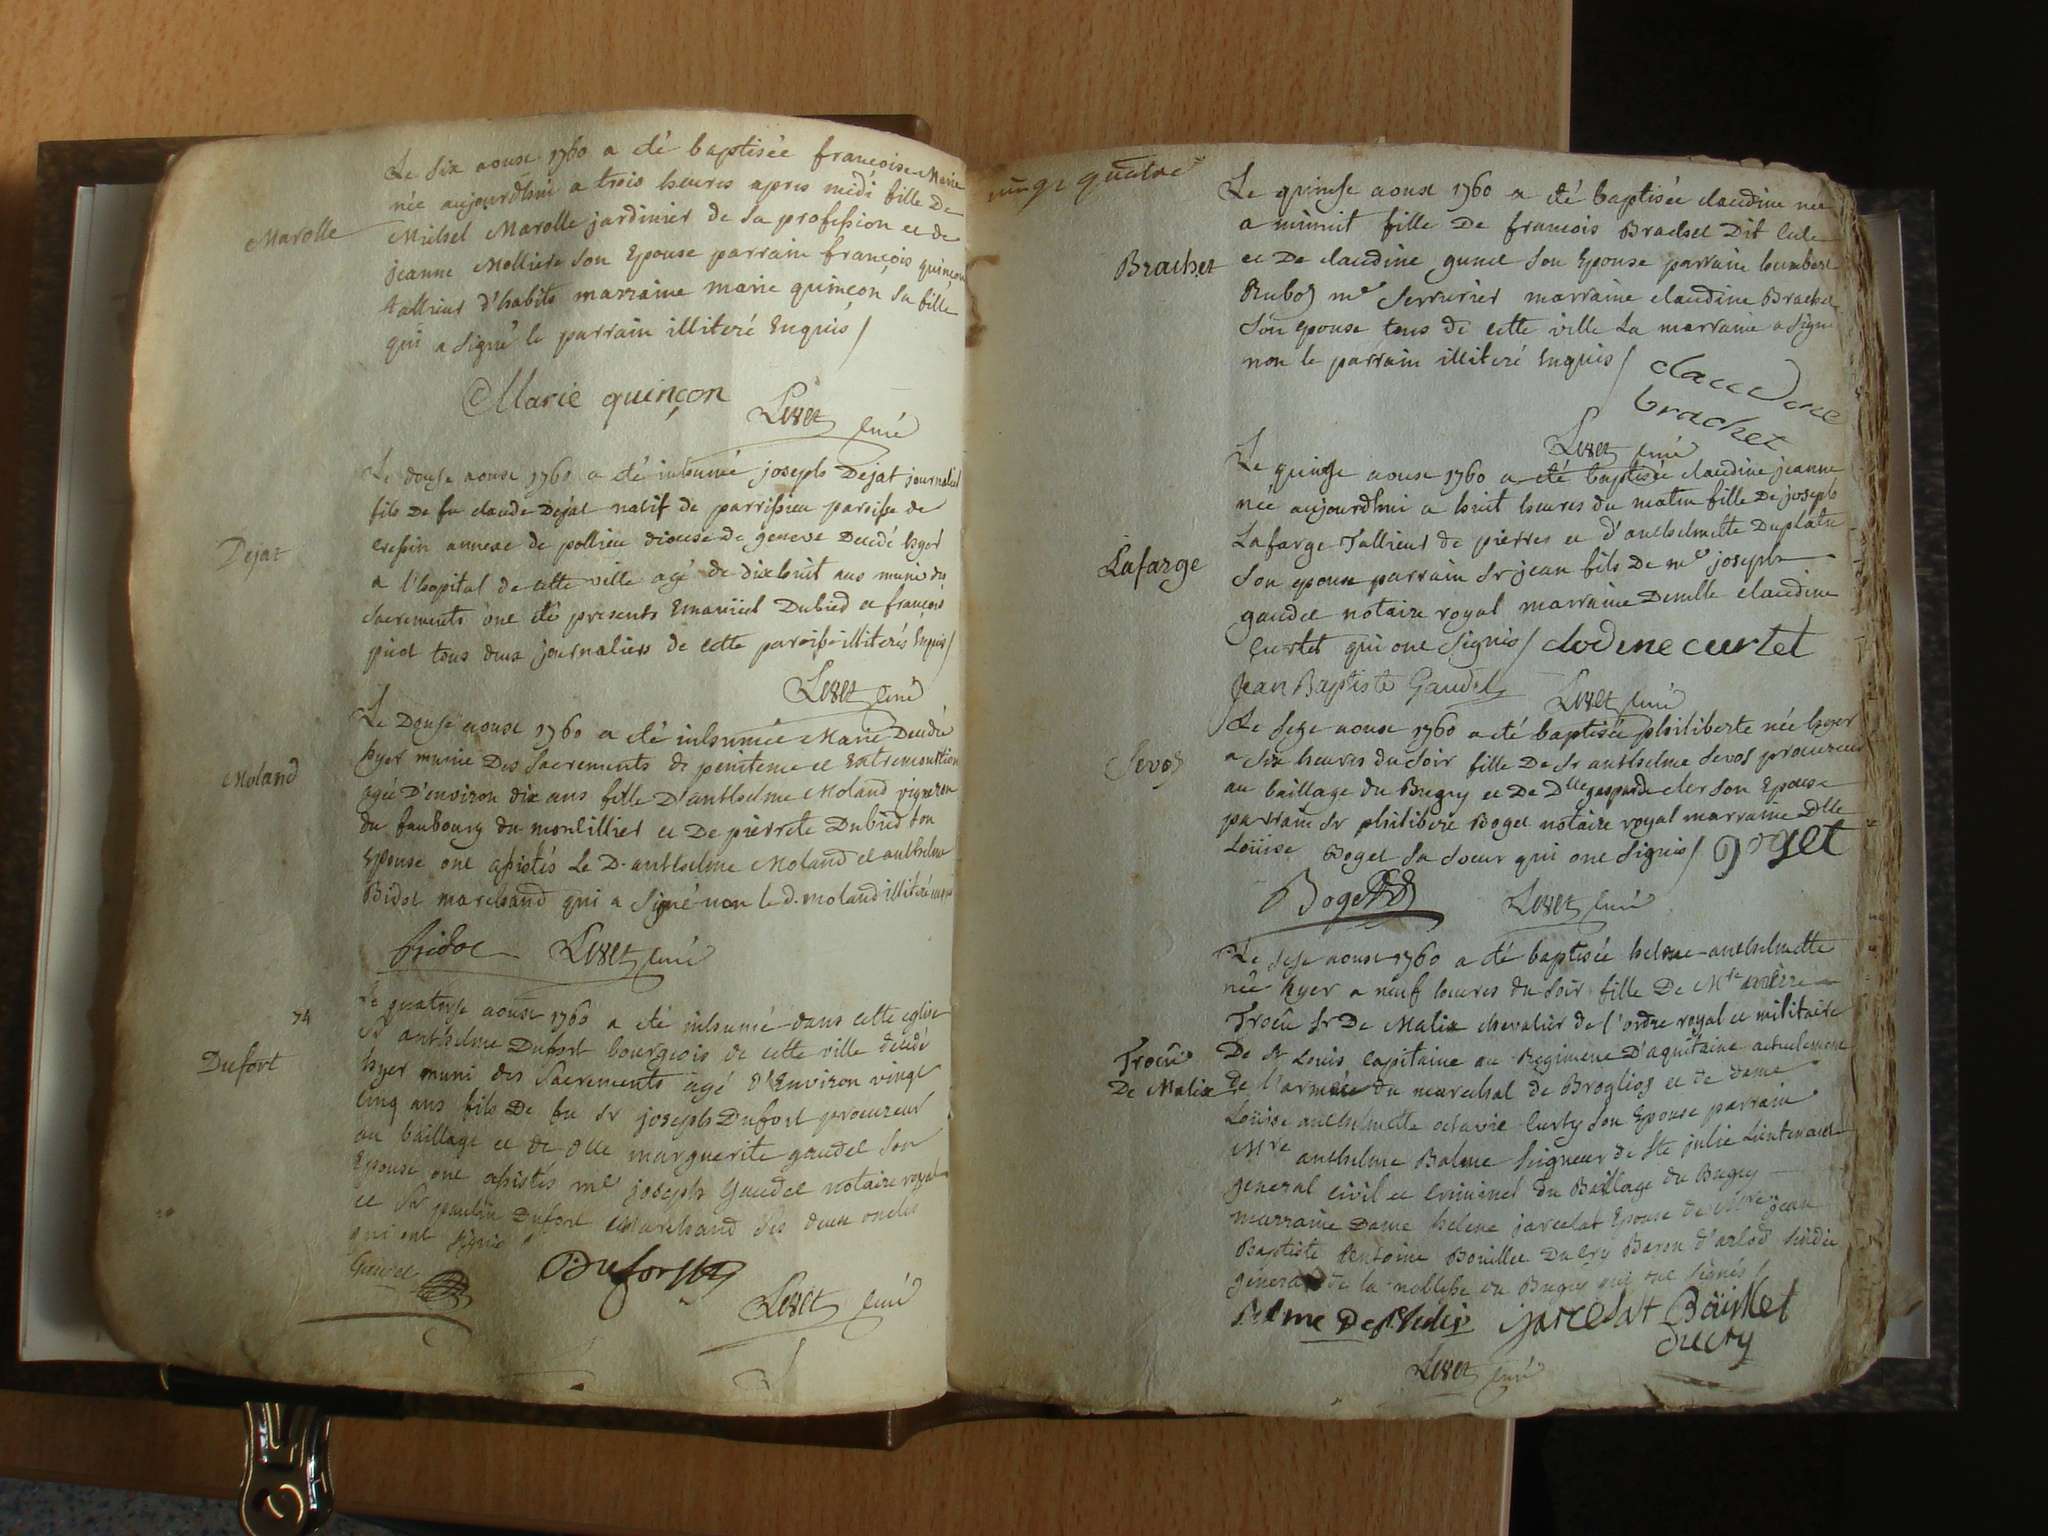 Le six aoust 1760 a été baptisée françoise Marie
née aujourdhui a trois heures apres midi fille De
Marolle
Michel Marolle jardinier de sa profession et de
jeanne Molliere son Epouse parrain françois quinçon
tallieur d'habits marraine marie quinçon sa fille
qui a signé le parrain illiteré Enquis /
Marie quinçon
Livet curé
Le douse aoust 1760 a été inhumé joseph Dejat journalier
fils De fu claude Dejat natif de parrissieu paroisse de
cressin annexe de pollieu diocese de geneve Decedé hyer
Dejat
a l'hopital de cette ville agé de dixhuit ans muni des
sacrements ont été presents Emanuel Dubied et françois
piot tous deux journaliers de cette paroisse illiterés Enquis /
Livet curé
Le Douse aoust 1760 a été inhumée Marie Decedée
hyer munie Des sacrements de penitence et Extremonction
Moland
agée D'environ dix ans fille D'anthelme Moland vigneron
du faubourg du montillier et De pierrete Dubied son
Epouse ont assistés Le D. anthelme Moland et anthelme
Bidot marchand qui a signé non le d. moland illiteré enquis
Bidot Livet curé
74
Le quatorse aoust 1760 a été inhumé dans cette eglise
Sr anthelme Dufort bourgeois de cette ville decedé
Dufort
hyer muni des sacrements agé d'Environ vingt
cinq ans fils De fu Sr joseph Dufort procureur
au baillage et de Dlle marguerite gaudet son
Epouse ont assistés me joseph Gaudet notaire royal
et Sr paulin Dufort Marchand ses deux oncles
qui ont signé
Gaudet
Dufort
Livet curé
vingt quatre
Le quinse aoust 1760 a été baptisée claudine née
a minuit fille De francois Brachet Dit
Brachet
et De claudine son Epouse parrain humbert
Rubod me serrurier marraine claudine Brachet
son epouse tous de cette ville La marraine a signé
non le parrain illiteré Enquis /
claudine
brachet
Livet curé
Le quinse aoust 1760 a été baptisée claudine jeanne
née aujourdhui a huit heures du matin fille De joseph
Lafarge
Lafarge Tallieur de pierres et d'anthelmette Duplatre
son epouse parrain Sr jean fils De me joseph
gaudet notaire royal marraine Demlle claudine
Curtet qui ont signés / clodine curtet
Jean Baptiste Gaudet Livet curé
Le seze aoust 1760 a été baptisée philiberte née hyer
Sevos
a six heures du soir fille De Sr anthelme Sevos procureur
au baillage du Bugey et De Dlle gasparde cler son Epouse
parrain Sr philibert Boget notaire royal marraine Dlle
Louise Boget sa soeur qui ont signés / Boget
Boget Livet curé
Le sese aoust 1760 a été baptisée helene anthelmette
née hyer a neuf heures du soir fille De Mre
Trocu Sr De Malix chevalier de l'ordre royal et militaire
Trocu
De Malix
De St Louis capitaine au Regiment D'aquitaine actuelement
de l'armée du marechal de Broglios et de dame
Louise anthelmette octavie Curty son Epouse parrain
Mre anthelme Balme seigneur de Ste julie Lieutenant
general civil et criminel du Baillage du Bugey
marraine Dame helene jarcelat Epouse de Mre jean
Baptiste Antoine Bouillet Ducry Baron d'arlod sindic
general de la noblesse du Bugey qui ont signés /
Balme De Ste Julie jarcelat Bouillet
ducry
Livet curé